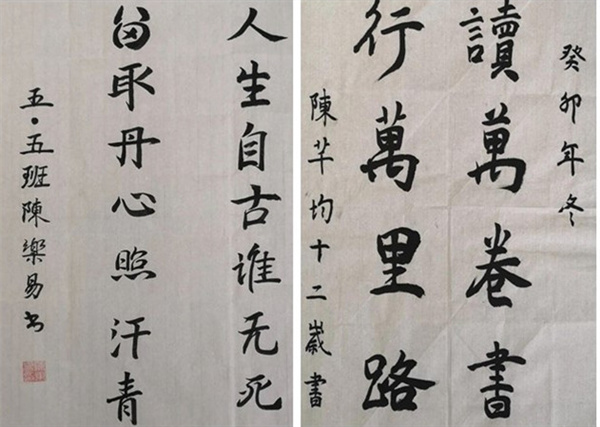 人生自古谁无死
留取丹心照汗青
五·五班陳樂易书
癸卯年冬
讀萬卷書
行萬里路
陳芊均十二歲書